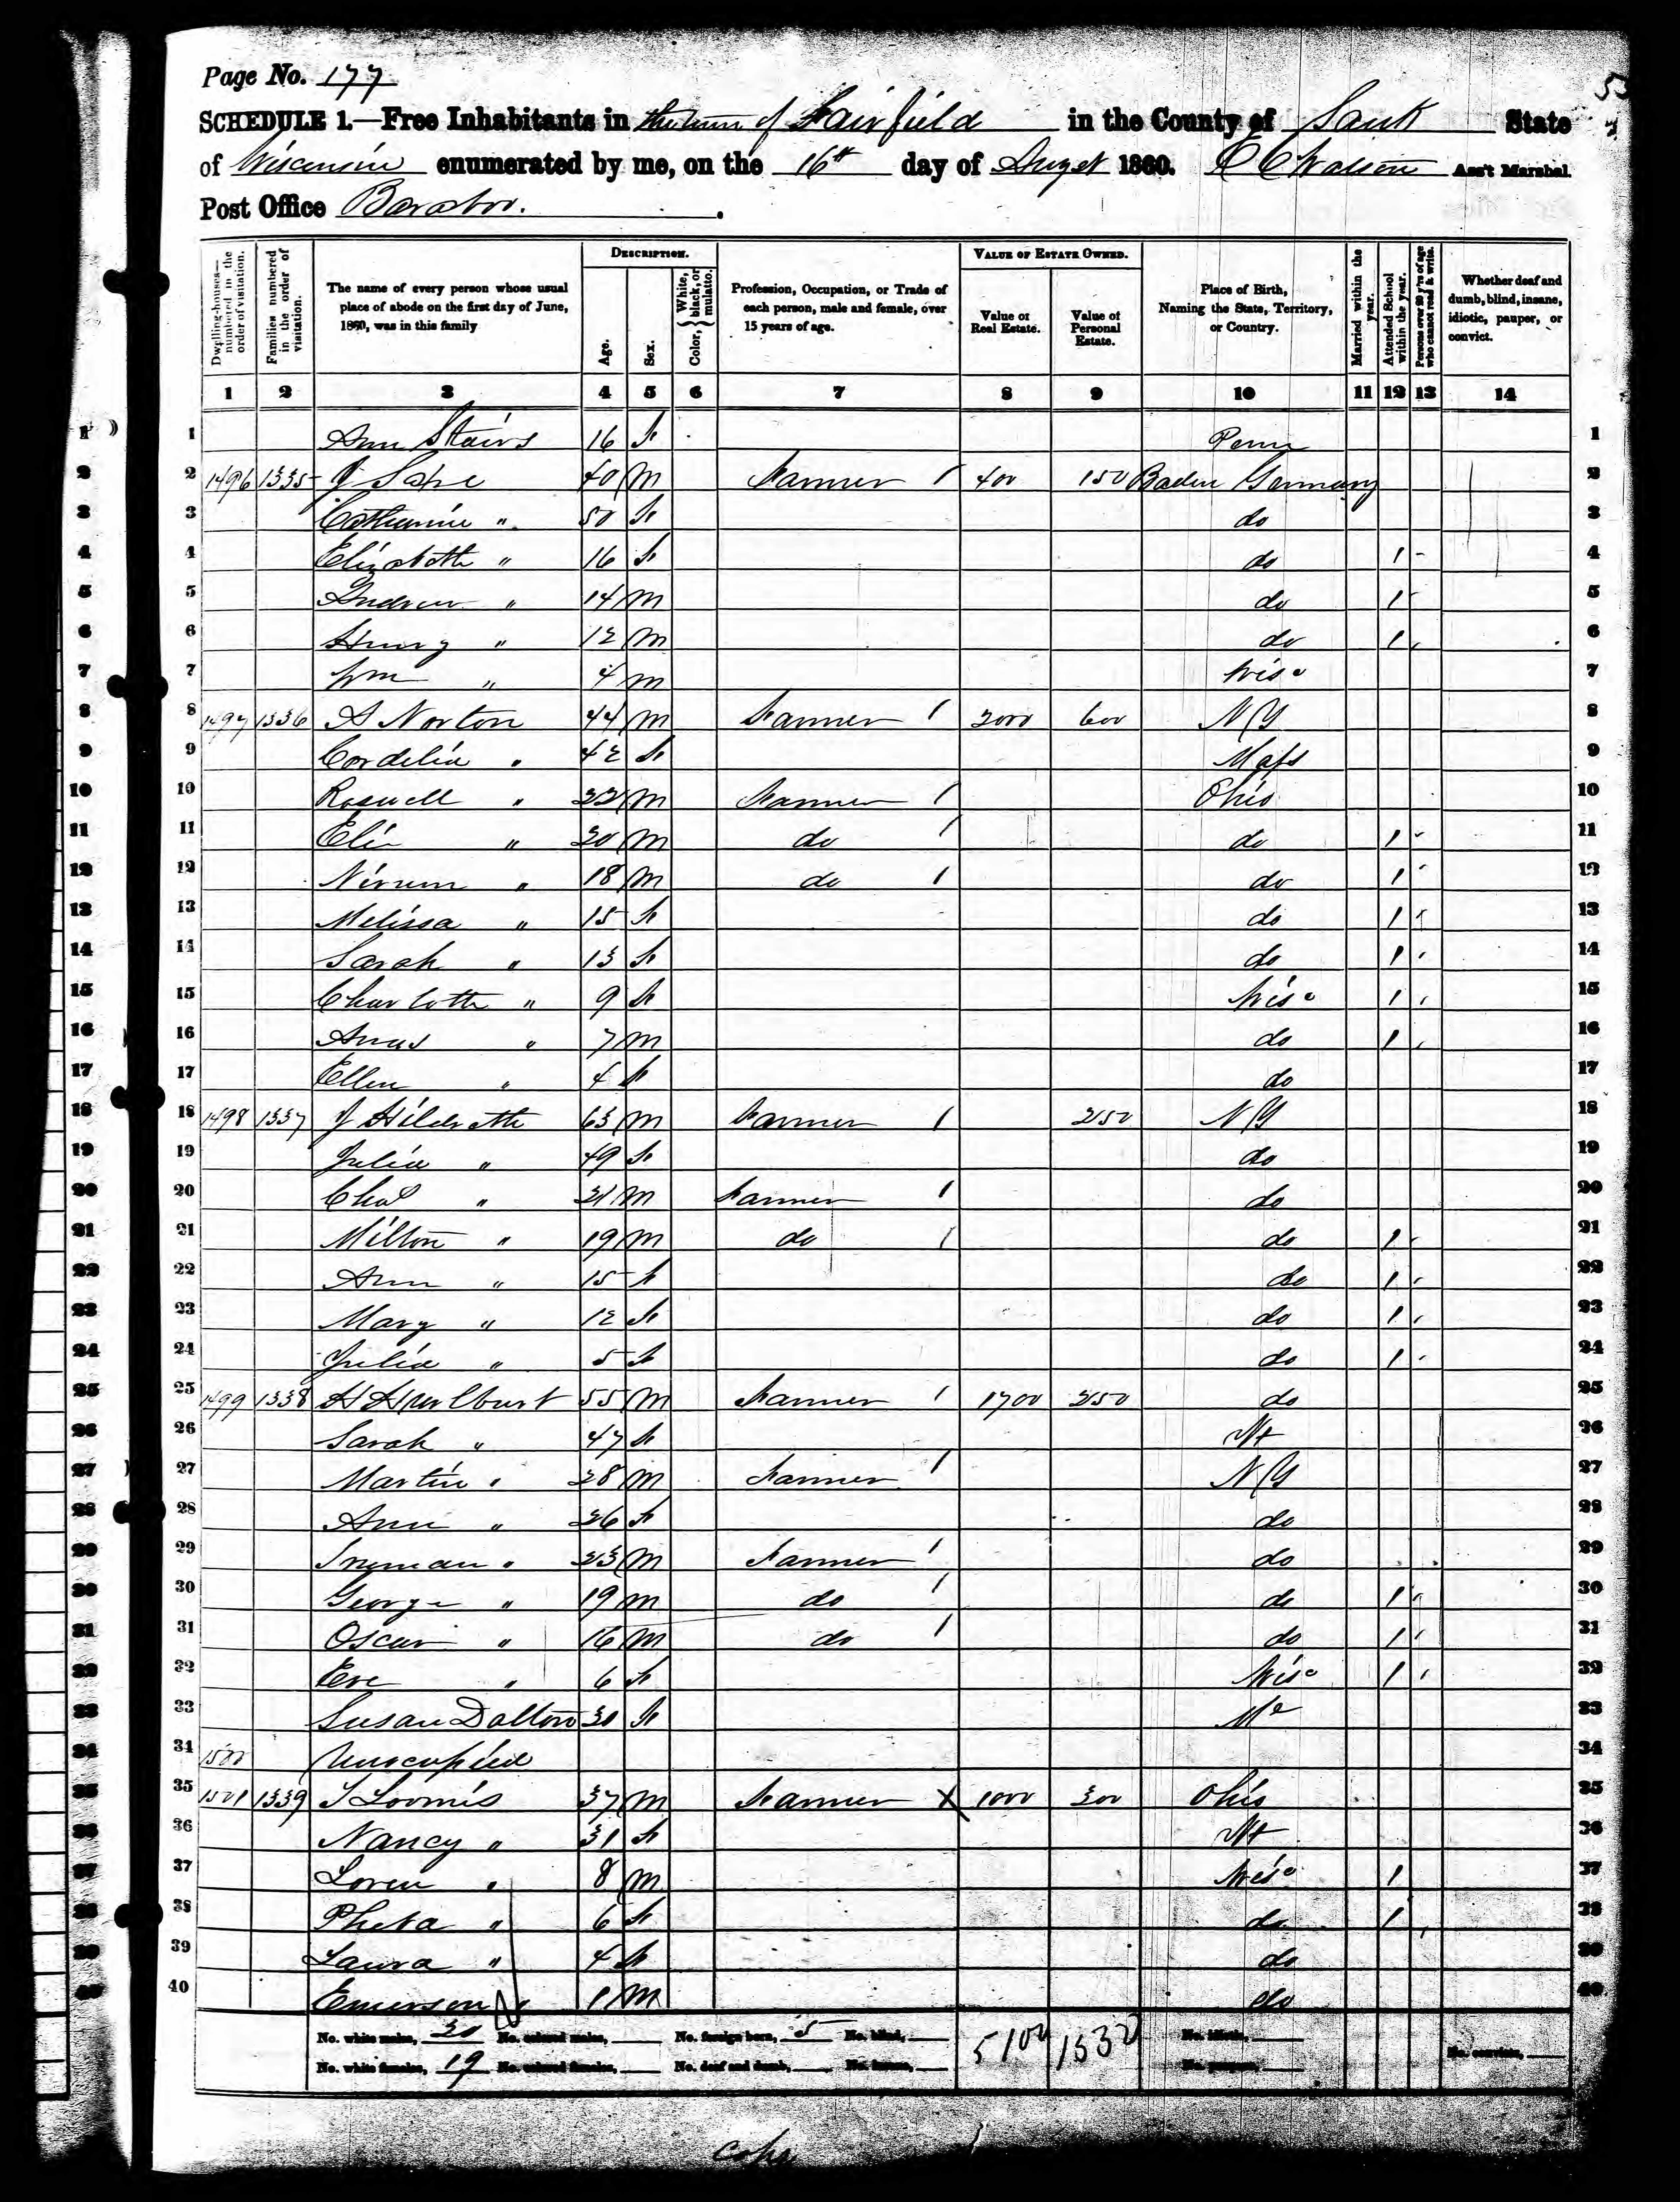 Page No. 177
SCHEDULE 1.—Free Inhabitants in the town of Fairfield in the County of Sauk State
of Wisconsin enumerated by me, on the 16th day of Augst 1860. Ass't Marshal.
Post Office Baraboo.
Dwelling-houses—numbered in the order of visitation.
Families numbered in the order of visitation.
The name of every person whose usual place of abode on the first day of June, 1860, was in this family
DESCRIPTION.
Age.
Sex.
Color, White, black, or mulatto.
Profession, Occupation, or Trade of each person, male and female, over 15 years of age.
VALUE OF ESTATE OWNED.
Value of Real Estate.
Value of Personal Estate.
Place of Birth, Naming the State, Territory, or Country.
Married within the year.
Attended School within the year.
Persons over 20 y'rs of age who cannot read & write.
Whether deaf and dumb, blind, insane, idiotic, pauper, or convict.
1 2 3 4 5 6 7 8 9 10 11 12 13 14
1 Ann Stairs 16 f Penn 1
2 1496 1335 J 40 m Farmer 1 400 150 Baden Germany 2
3 Catharine " 50 f do 3
4 Elizabeth " 16 f do 1 4
5 Andrew " 14 m do 1 5
6 Henry " 12 m do 1 6
7 Wm " 4 m Wisc 7
8 1497 1336 A Norton 44 m Farmer 1 2000 600 N Y 8
9 Cordelia " 42 f Mass 9
10 Roswell " 22 m Farmer 1 Ohio 10
11 " 20 m do 1 do 1 11
12 " 18 m do 1 do 1 12
13 Melissa " 15 f do 1 13
14 Sarah " 13 f do 1 14
15 Charlotte " 9 f Wisc 1 15
16 " 7 m do 1 16
17 Ellen " 4 f do 17
18 1498 1337 J Hildreth 63 m Farmer 1 250 N Y 18
19 Julia " 49 f do 19
20 Chas " 21 m Farmer 1 do 20
21 Milton " 19 m do 1 do 1 21
22 Ann " 15 f do 1 22
23 Mary " 12 f do 1 23
24 Julia " 5 f do 1 24
25 1499 1338 H Hurlburt 55 m Farmer 1 1700 250 do 25
26 Sarah " 47 f Vt 26
27 Martin " 28 m Farmer 1 N Y 27
28 Ann " 26 f do 28
29 " 23 m Farmer 1 do 29
30 George " 19 m do 1 do 1 30
31 Oscar " 16 m do 1 do 1 31
32 Eve " 6 f Wisc 1 32
33 Susan Dalton 30 f Me 33
34 1500 Unocupied 34
35 1501 1339 Loomis 37 m Farmer X 1000 300 Ohio 35
36 Nancy " 31 f Vt 36
37 Loren " 8 m Wisc 1 37
38 Pheba " 6 f do 1 38
39 Laura " 4 f do 39
40 Emerson " 1 m do 40
No. white males, 20 No. colored males, No. foreign born, 5 No. blind, 5100 1550 No. idiotic,
No. white females, 19 No. colored females, No. deaf and dumb, No. insane, No. paupers, No. convicts,